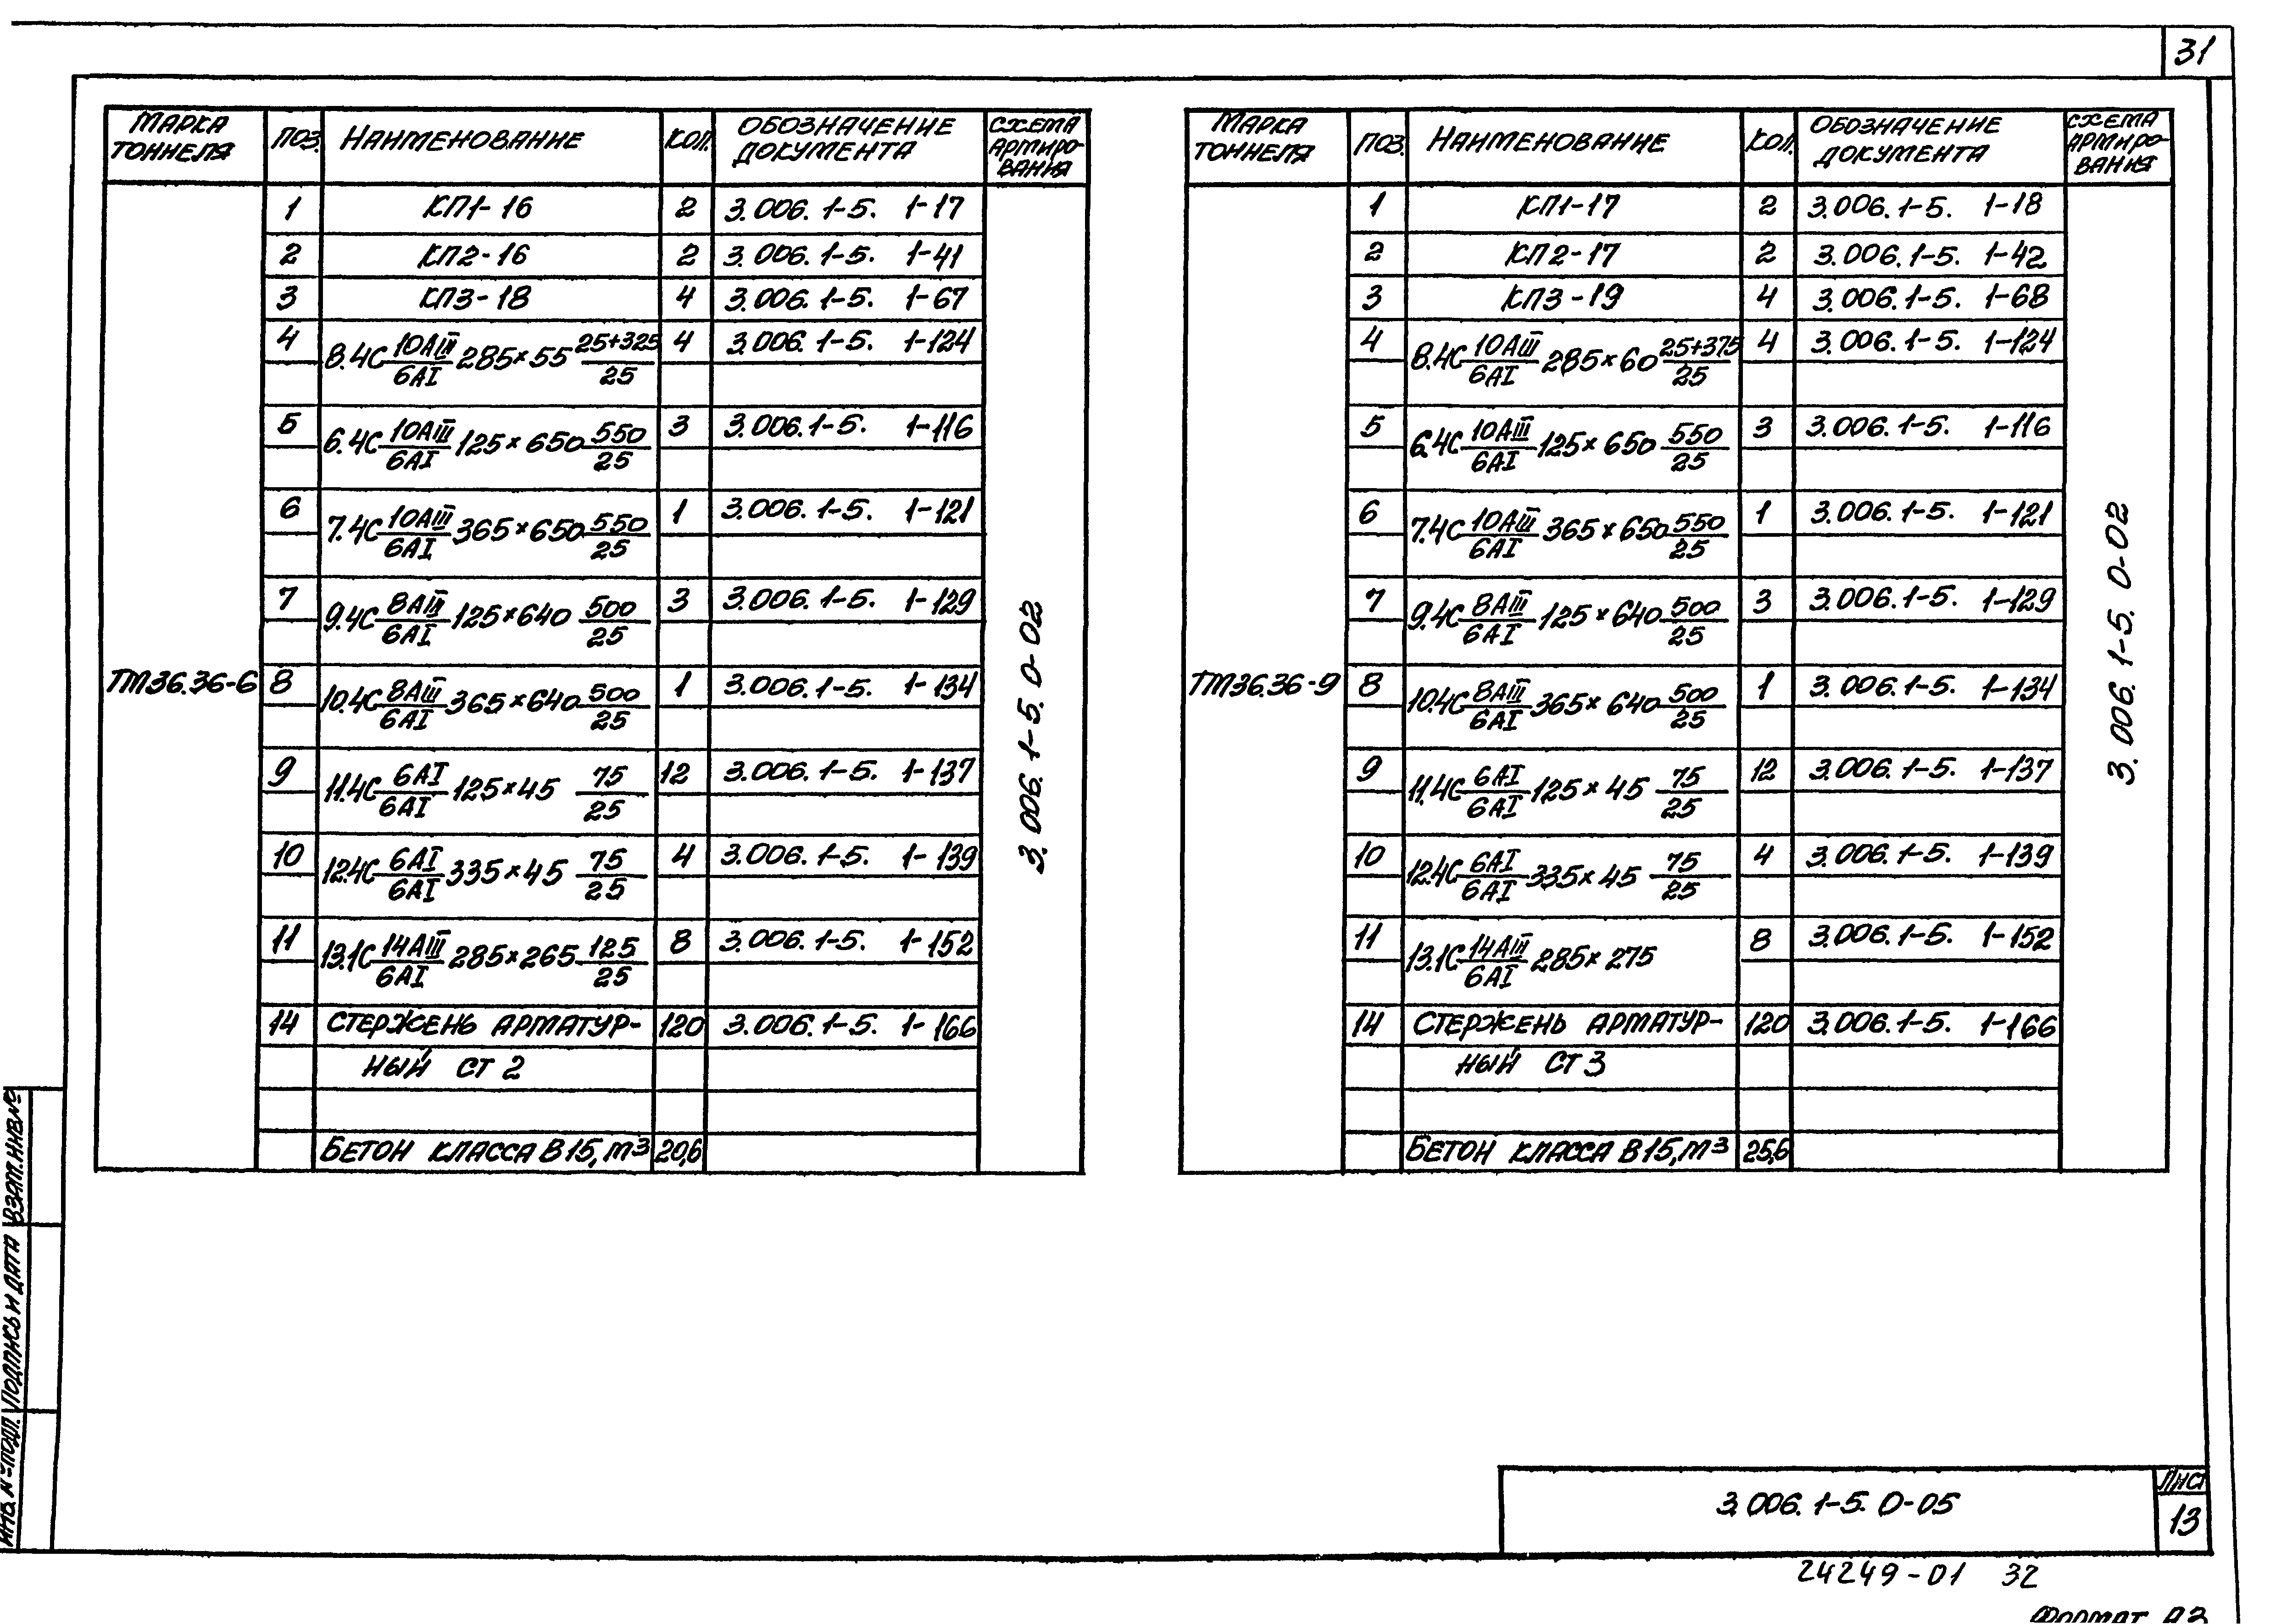 31
МАРКА ТОННЕЛЯ ПОЗ. НАИМЕНОВАНИЕ КОЛ. ОБОЗНАЧЕНИЕ ДОКУМЕНТА СХЕМА АРМИРО-ВАНИЯ
ТМ36.36-6
1 КП1-16 2 3.006.1-5. 1-17
2 КП2-16 2 3.006.1-5. 1-41
3 КП3-18 4 3.006.1-5. 1-67
4 8.4С 10АIII/6АI 285×55 25+325/25 4 3.006.1-5. 1-124
5 6.4С 10АIII/6АI 125×650 550/25 3 3.006.1-5. 1-116
6 7.4С 10АIII/6АI 365×650 550/25 1 3.006.1-5. 1-121
7 9.4С 8АIII/6АI 125×640 500/25 3 3.006.1-5. 1-129
8 10.4С 8АIII/6АI 365×640 500/25 1 3.006.1-5. 1-134
9 11.4С 6АI/6АI 125×45 75/25 12 3.006.1-5. 1-137
10 12.4С 6АI/6АI 335×45 75/25 4 3.006.1-5. 1-139
11 13.1С 14АIII/6АI 285×265 125/25 8 3.006.1-5. 1-152
14 СТЕРЖЕНЬ АРМАТУР- 120 3.006.1-5. 1-166
НЫЙ СТ 2
БЕТОН КЛАССА В15, м3 20,6
3.006.1-5.0-02
МАРКА ТОННЕЛЯ ПОЗ. НАИМЕНОВАНИЕ КОЛ. ОБОЗНАЧЕНИЕ ДОКУМЕНТА СХЕМА АРМИРО-ВАНИЯ
ТМ36.36-9
1 КП1-17 2 3.006.1-5. 1-18
2 КП2-17 2 3.006.1-5. 1-42
3 КП3-19 4 3.006.1-5. 1-68
4 8.4С 10АIII/6АI 285×60 25+375/25 4 3.006.1-5. 1-124
5 6.4С 10АIII/6АI 125×650 550/25 3 3.006.1-5. 1-116
6 7.4С 10АIII/6АI 365×650 550/25 1 3.006.1-5. 1-121
7 9.4С 8АIII/6АI 125×640 500/25 3 3.006.1-5. 1-129
8 10.4С 8АIII/6АI 365×640 500/25 1 3.006.1-5. 1-134
9 11.4С 6АI/6АI 125×45 75/25 12 3.006.1-5. 1-137
10 12.4С 6АI/6АI 335×45 75/25 4 3.006.1-5. 1-139
11 13.1С 14АIII/6АI 285×275 8 3.006.1-5. 1-152
14 СТЕРЖЕНЬ АРМАТУР- 120 3.006.1-5. 1-166
НЫЙ СТ 3
БЕТОН КЛАССА В15, м3 25,6
3.006.1-5.0-02
ИНВ.№ПОДЛ. ПОДПИСЬ И ДАТА ВЗАМ.ИНВ.№
3.006.1-5.0-05
ЛИСТ
13
24249-01 32
ФОРМАТ А3